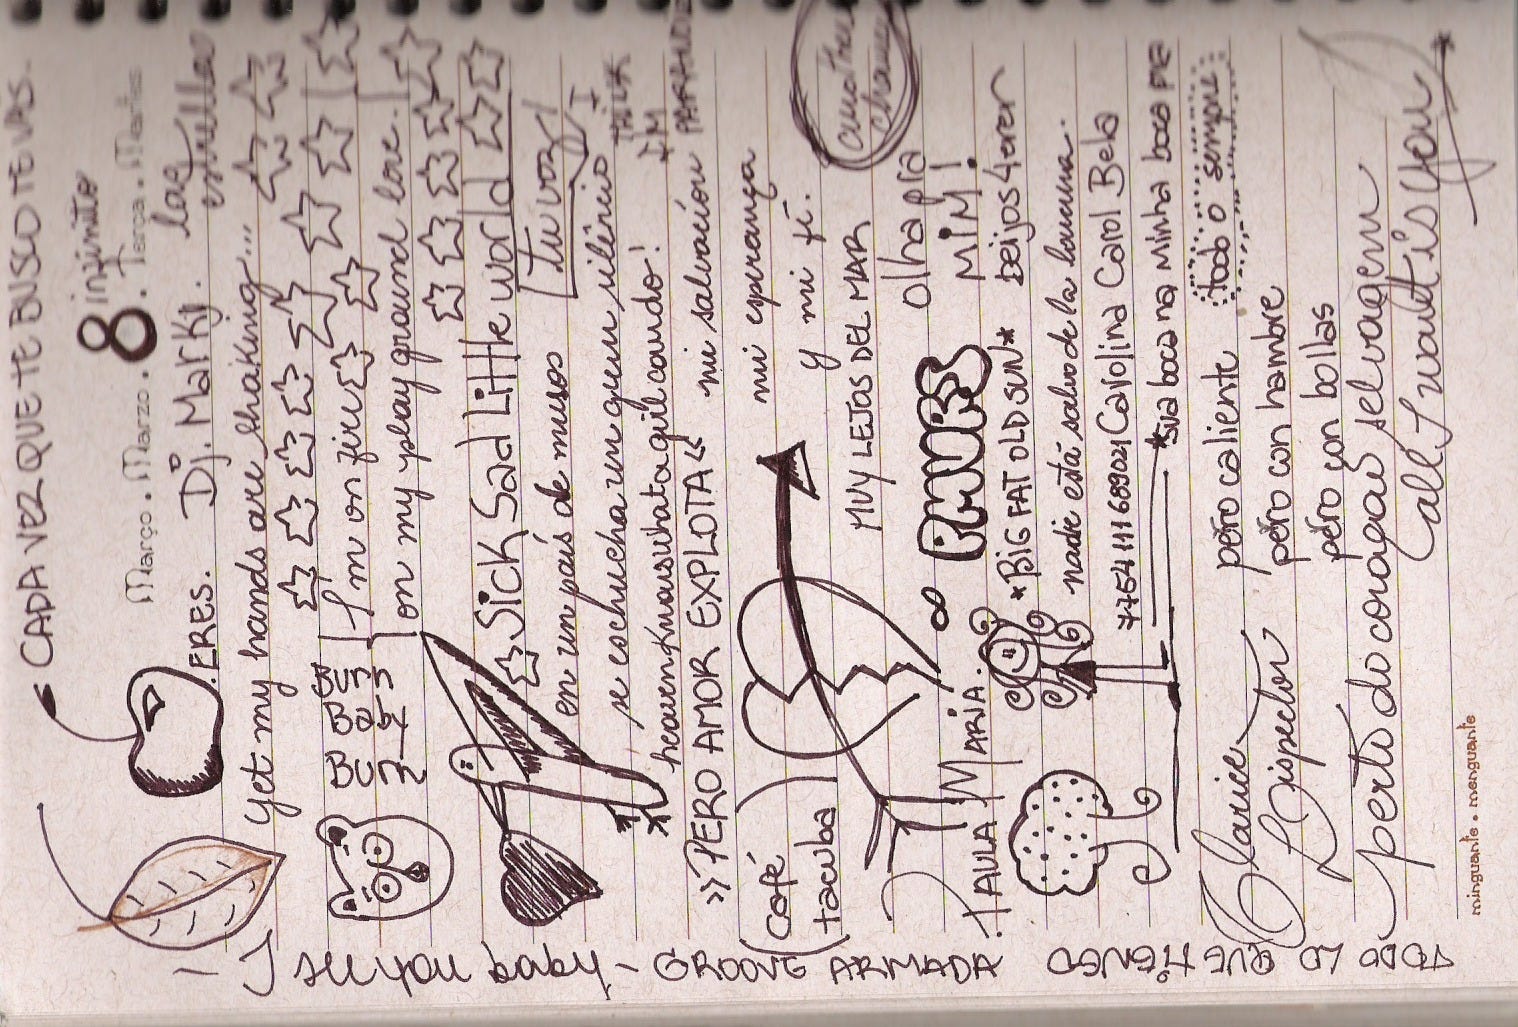 CADA VEZ QUE TE BUSCO TE VAS.
8 infinito
Março . Marzo . 8 . Terça . Martes
ERES. Dj. Marky. las estrellas
yet my hands are shaking...
I'm on fire
on my play ground love.
Bunn
Baby
Bunn
Sick Sad Little World
tu voz
en un país de musos
se eschucha um quem silêncio
TALK
I'M
PARANOID
heavenknowswhataqilicando!
»PERO AMOR EXPLOTA«
mi salvación
mi esperança
y mi fé.
(café tacuba)
MUY LEJOS DEL MAR
olha pra
MIM!
PAULA MARIA. ∞
*BIG FAT OLD SUN*
beijos4ever
nadie está salvo de la locura.
Carolina Carol Bela
*sua boca na minha boca me
todo o sempre
Clarice Lispector
pero caliente
pero con hambre
pero con bollas
perto do coração selvagem
all I want is you *
minguante . menguante
- I see you baby - GROOVE ARMADA
TODO LO QUE TENGO